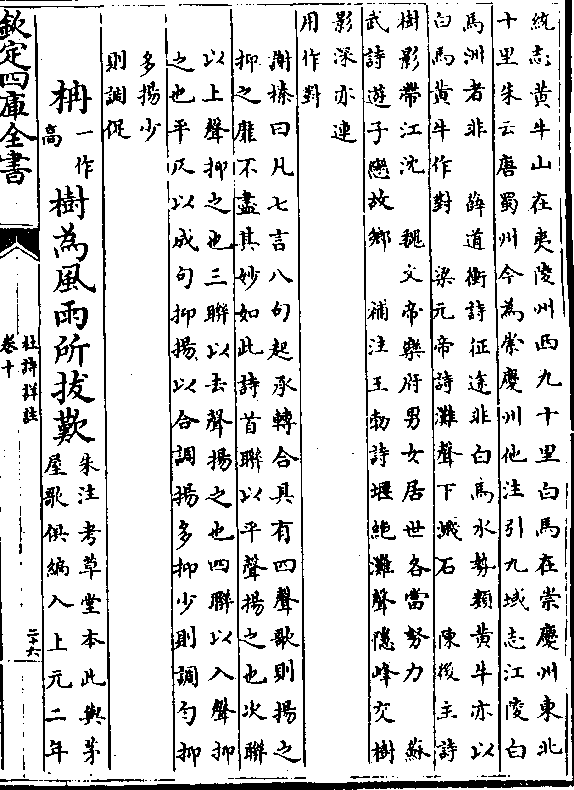 統志黄牛山在夷陵州西九十里白馬在崇慶州東北
十里朱云唐蜀州今為崇慶州他注引九域志江陵白
馬洲者非　薛道衡詩征途非白馬水勢類黄牛亦以
白馬黄牛作對　梁元帝詩灘聲下濺石　陳後主詩
樹影帶江沈　魏文帝樂府男女居世各當努力　蘇
武詩遊子戀故鄉　補注王勃詩堰絶灘聲隱峰交樹
影深亦連
用作對
謝榛曰凡七言八句起承轉合具有四聲歌則揚之
抑之靡不盡其妙如此詩首聯以平聲揚之也次聯
以上聲抑之也三聯以去聲揚之也四聯以入聲抑
之也平仄以成句抑揚以合調揚多抑少則調勻抑
多揚少
則調促
枏一作高樹為風雨所拔歎朱注考草堂本此與茅
屋歌俱編入上元二年
欽定四庫全書
杜詩詳註
卷十
二十六